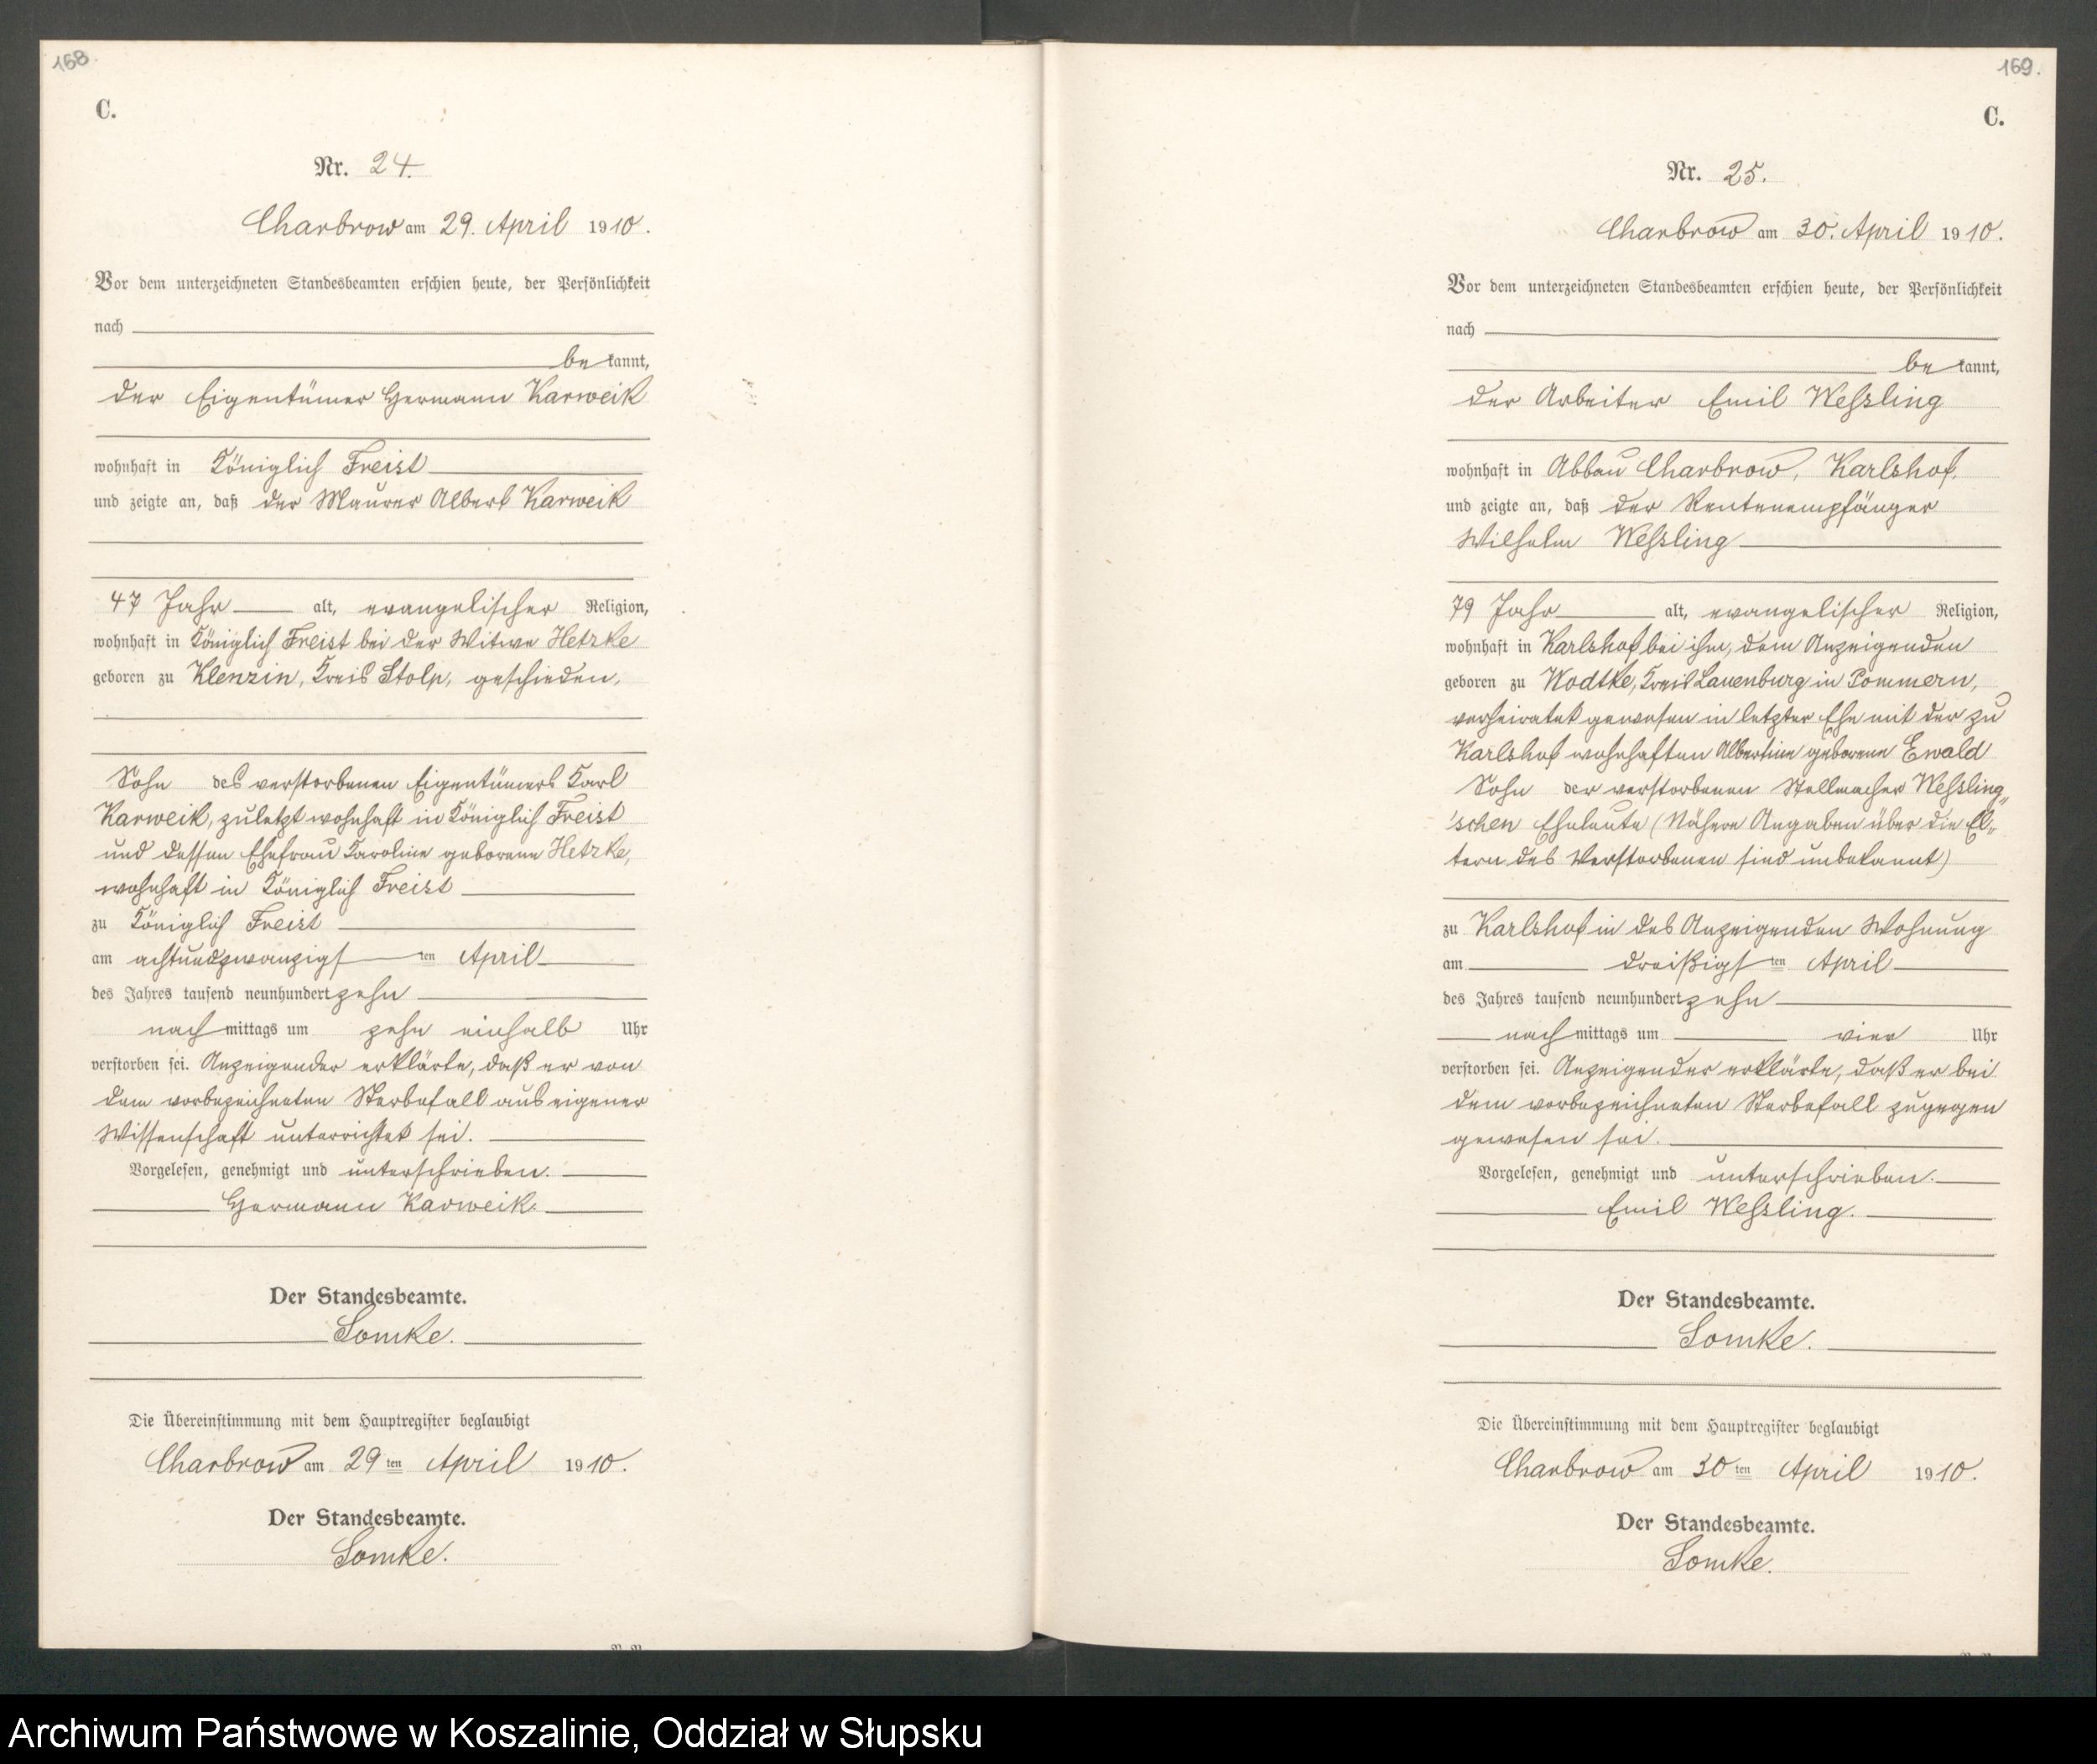 168.
C.
Nr. 24.
Charbrow am 29. April 1910.
Vor dem unterzeichneten Standesbeamten erschien heute, der Persönlichkeit
nach
be kannt,
der Eigentümer Hermann Karweik
wohnhaft in Königlich Freist
und zeigte an, daß der Maurer Albert Karweik
47 Jahr alt, evangelischer Religion,
wohnhaft in Königlich Freist bei der Witwe Hetzke
geboren zu Klenzin, Kreis Stolp, geschieden,
Sohn des verstorbenen Eigentümers Karl
Karweik, zuletzt wohnhaft in Königlich Freist
und dessen Ehefrau Karoline geborene Hetzke,
wohnhaft in Königlich Freist
zu Königlich Freist
am achtundzwanzigsten April
des Jahres tausend neunhundert zehn
nachmittags um zehn einhalb Uhr
verstorben sei. Anzeigender erklärte, daß er von
dem vorbezeichneten Sterbefall aus eigener
Wissenschaft unterrichtet sei.
Vorgelesen, genehmigt und unterschrieben.
Hermann Karweik.
Der Standesbeamte.
Lomke.
Die Übereinstimmung mit dem Hauptregister beglaubigt
Charbrow am 29ten April 1910.
Der Standesbeamte.
Lomke.
169.
C.
Nr. 25.
Charbrow am 30. April 1910.
Vor dem unterzeichneten Standesbeamten erschien heute, der Persönlichkeit
nach
be kannt,
der Arbeiter Emil Weßling
wohnhaft in Abbau Charbrow, Karlshof.
und zeigte an, daß der Rentenempfänger
Wilhelm Weßling
79 Jahr alt, evangelischer Religion,
wohnhaft in Karlshof bei ihm, dem Anzeigenden
geboren zu Wodtke, Kreis Lauenburg in Pommern,
verheiratet gewesen in letzter Ehe mit der zu
Karlshof wohnhaften Albertine geborene Ewald
Sohn der verstorbenen Stellmacher Weßling„
'schen Eheleute (Nähere Angaben über die El„
tern des Verstorbenen sind unbekannt)
zu Karlshof in des Anzeigenden Wohnung
am dreißigsten April
des Jahres tausend neunhundert zehn
nachmittags um vier Uhr
verstorben sei. Anzeigender erklärte, daß er bei
dem vorbezeichneten Sterbefall zugegen
gewesen sei.
Vorgelesen, genehmigt und unterschrieben.
Emil Weßling.
Der Standesbeamte.
Lomke.
Die Übereinstimmung mit dem Hauptregister beglaubigt
Charbrow am 30ten April 1910.
Der Standesbeamte.
Lomke.
Archiwum Państwowe w Koszalinie, Oddział w Słupsku